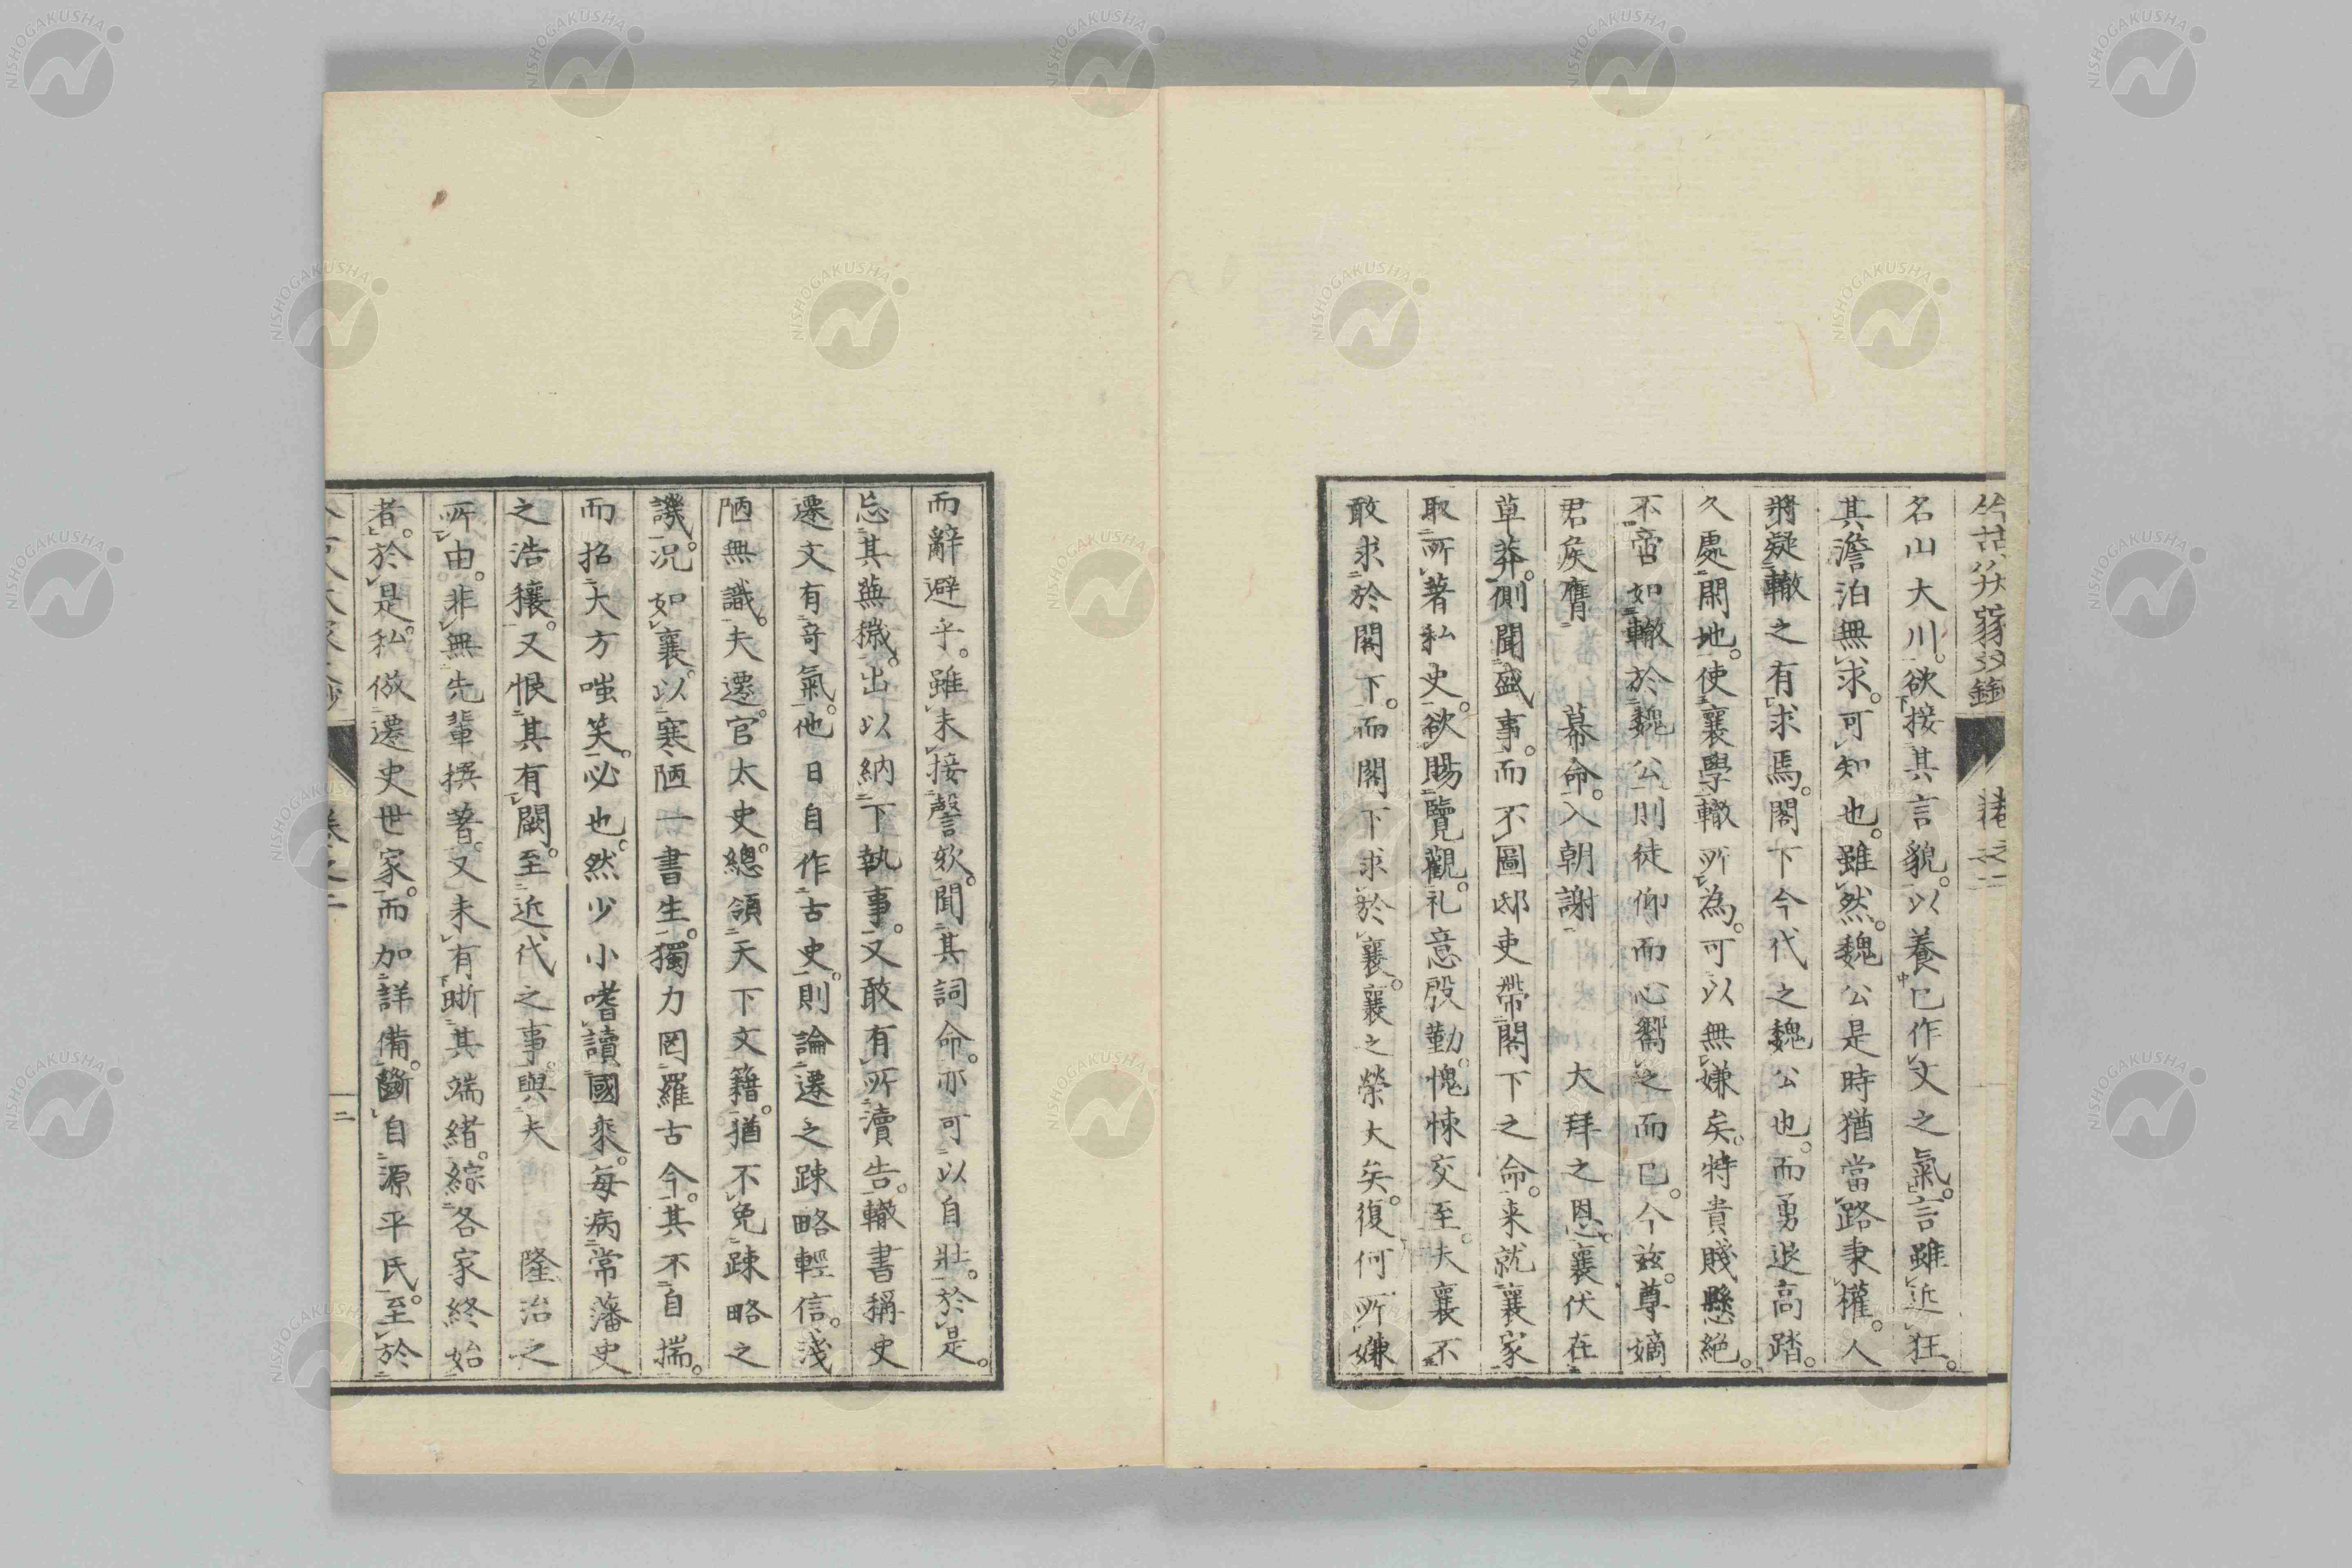 名山大川。欲按其言貌。以養已作文之氣。言雖近狂。
其澹泊無求。可知也。雖然。魏公是時猶當路秉權。人
將疑轍之有求焉。閣下今代之魏公也。而勇退高踏。
久處閑地。使襄學轍所為。可以無嫌矣。特貴賤懸絕。
不啻如轍於魏公則徒仰而心嚮之而已。今茲。尊嫡
君矦膺 幕命。入朝謝 大拜之恩。襄伏在
草莽。側聞盛事。而不圖邸吏帶閣下之命。来就襄家
取所著私史。欲賜覽觀。礼意殷勤。愧悚交至。夫襄不
敢求於閣下。而閣下求於襄。襄之榮大矣。復何所嫌
而辭避乎。雖未接謦欬。聞其詞命。亦可以自壯。於是。
忘其蕪穢。出以納下執事。又敢有所瀆告。轍書稱史
遷文有竒氣。他日自作古史。則論遷之踈略輕信。淺
陋無識。夫遷官太史。總領天下文籍。猶不免踈略之
譏。况如襄。以寒陋一書生。獨力罔羅古今。其不自揣。
而招大方嗤笑。必也。然少小嗜讀國乘。每病常藩史
之浩穰。又恨其有闕。至近代之事。與夫 隆治之
所由。非無先輩撰著。又未有晰其端緒。綜各家終始
者。於是。私倣遷史世家。而加詳備。斷自源平氏。至於
卷之二
二